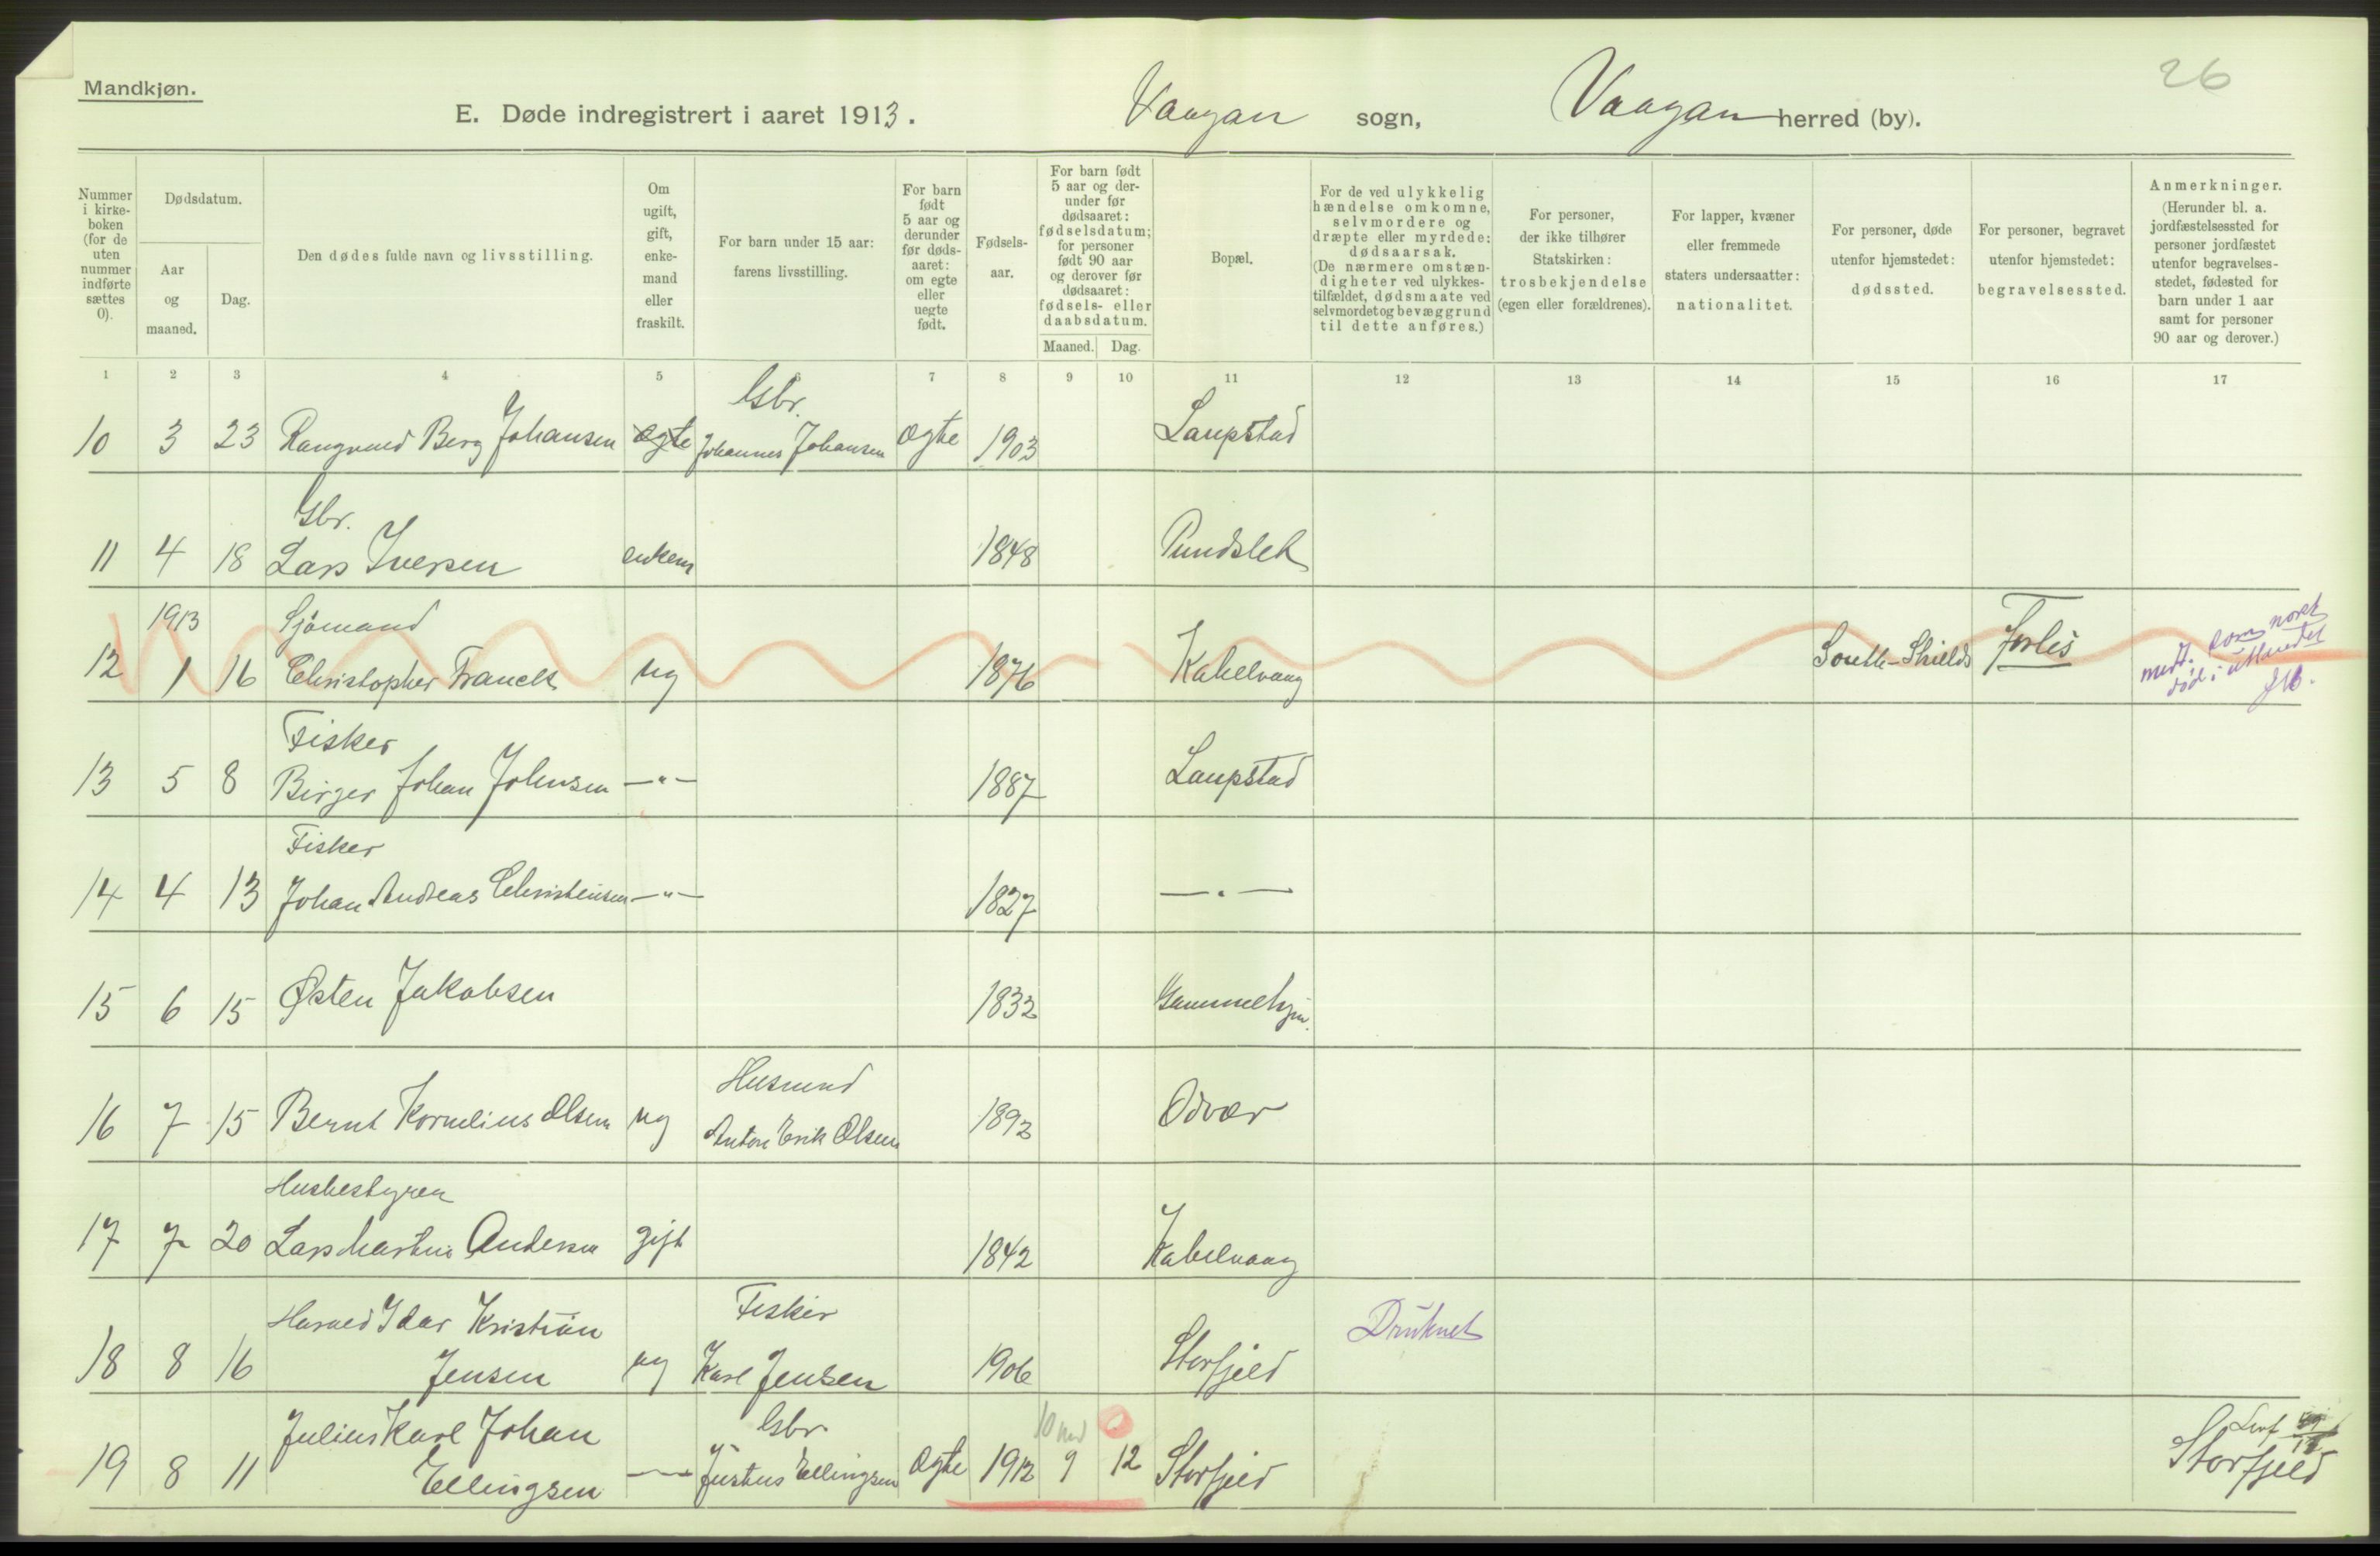 26
Mandkjøn.
E. Døde indregistrert i aaret 1913. Vaagan sogn, Vaagan herred (by).
Nummer i kirke-boken (for de uten nummer indførte sættes 0).
Dødsdatum.
Aar og maaned.
Dag.
Den dødes fulde navn og livsstilling.
Om ugift, gift, enke-mand eller fraskilt.
For barn under 15 aar: farens livsstilling.
For barn født 5 aar og derunder før døds-aaret: om egte eller uegte født.
Fødsels-aar.
For barn født 5 aar og der-under før dødsaaret: fødselsdatum; for personer født 90 aar og derover før dødsaaret: fødsels- eller daabsdatum.
Maaned. Dag.
Bopæl.
For de ved ulykkelig hændelse omkomne, selvmordere og dræpte eller myrdede: dødsaarsak. (De nærmere omstæn-digheter ved ulykkes-tilfældet, dødsmaate ved selvmordet og bevæggrund til dette anføres.)
For personer, der ikke tilhører Statskirken: trosbekjendelse (egen eller forældrenes).
For lapper, kvæner eller fremmede staters undersaatter: nationalitet.
For personer, døde utenfor hjemstedet: dødssted.
For personer, begravet utenfor hjemstedet: begravelsessted.
Anmerkninger. (Herunder bl. a. jordfæstelsessted for personer jordfæstet utenfor begravelses-stedet, fødested for barn under 1 aar samt for personer 90 aar og derover.)
1 2 3 4 5 6 7 8 9 10 11 12 13 14 15 16 17
Gbr.
10 3 23 Rangvald Berg Johansen ægte Johannes Johansen ægte 1903 Laupstad
Gbr.
11 4 18 Lars Iversen enkem 1848 Pundslet
1913 Sjömand
12 1 16 Christopher Franck ug 1876 Kabelvaag South-Shields Forlis
medt. som norsk
död i utlandet
Fisker
13 5 8 Birger Johan Johnsen —"— 1887 Laupstad
Fisker
14 4 13 Johan Andreas Christensen —"— 1827 —"—
15 6 15 Østen Jakobsen 1832 Gammelhjm.
Husmand
16 7 15 Bernt Kornelius Olsen ug Anton Erik Olsen 1892 Odvær
Husbestyrer
17 7 20 Lars Martin Andersen gift 1842 Kabelvaag
Harald Idar Kristian Fisker Druknet
18 8 16 Jensen ug Karl Jensen 1906 Storfjeld
Julius Karl Johan Gbr 10 md 0
19 8 11 Ellingsen —"— Justus Ellingsen ægte 1912 9 12 Storfjeld Storfjeld